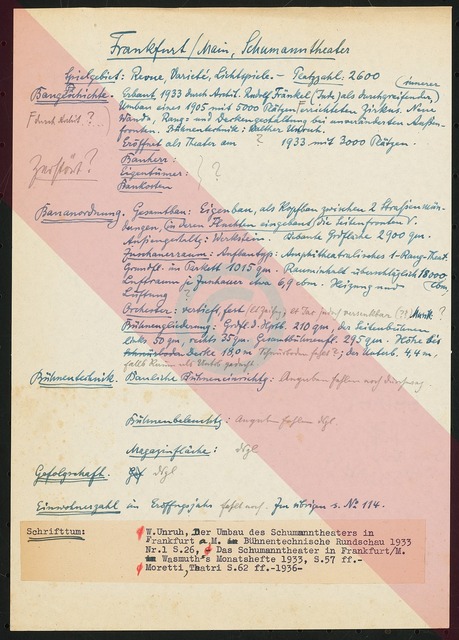 Frankfurt/Main, Schumanntheater
Spielgebiet: Revue, Varieté, Lichtspiele. – Platzzahl: 2600
Baugeschichte. Erbaut 1933 durch Archit. Rudolf Fränkel (Jude) als durchgreifender (innerer)
Umbau eines 1905 mit 5000 Plätzen errichteten Zirkus. Neue
F durch Archit ? Wände, Rang- und Deckengestaltung bei unveränderten Außen-
fronten. Bühnentechnik: Walther Unruh.
Eröffnet als Theater am ? 1933 mit 3000 Plätzen.
Zerstört? Bauherr:
Eigentümer: ?
Baukosten
Bauanordnung. Gesamtbau: Eigenbau, als Kopfbau zwischen 2 Straßenmün-
dungen, in deren Fluchten eingebaut die Seitenfronten
Außengestalt: Werkstein. Bebaute Grdfläche 2900 qm.
Zuschauerraum: Aufbautyp: Amphitheatralisches 1-Rang-Theat.
Grundfl. im Parkett 1015 qm. Rauminhalt überschläglich 18000 cbm,
Luftraum je Zuschauer etwa 6,9 cbm. Heizung und
Lüftung ?
Orchester: vertieft, fest
Bühnengliederung: Grdfl. d. Hptb. 210 qm, der Seitenbühnen
links 50 qm, rechts 35 qm. Gesamtbühnenfl. 295 qm. Höhe bis
Schnürboden Decke 18,0 m Schnürboden fehlt?; der Unterb. 4,4 m.
Bühnentechnik. Bauliche Bühneneinrichtg: Angaben fehlen noch
Bühnenbeleuchtg: Angaben fehlen dsgl.
Magazinfläche: dsgl
Gefolgschaft. dsgl
Einwohnerzahl im Eröffngsjahr fehlt noch. Im übrigen s. No 114.
Schrifttum: W.Unruh, Der Umbau des Schumanntheaters in
Frankfurt a.M. in Bühnentechnische Rundschau 1933
Nr.1 S.26, Das Schumanntheater in Frankfurt/M.
in Wasmuth's Monatshefte 1933, S.57 ff.-
Moretti, Teatri S.62 ff.-1936-